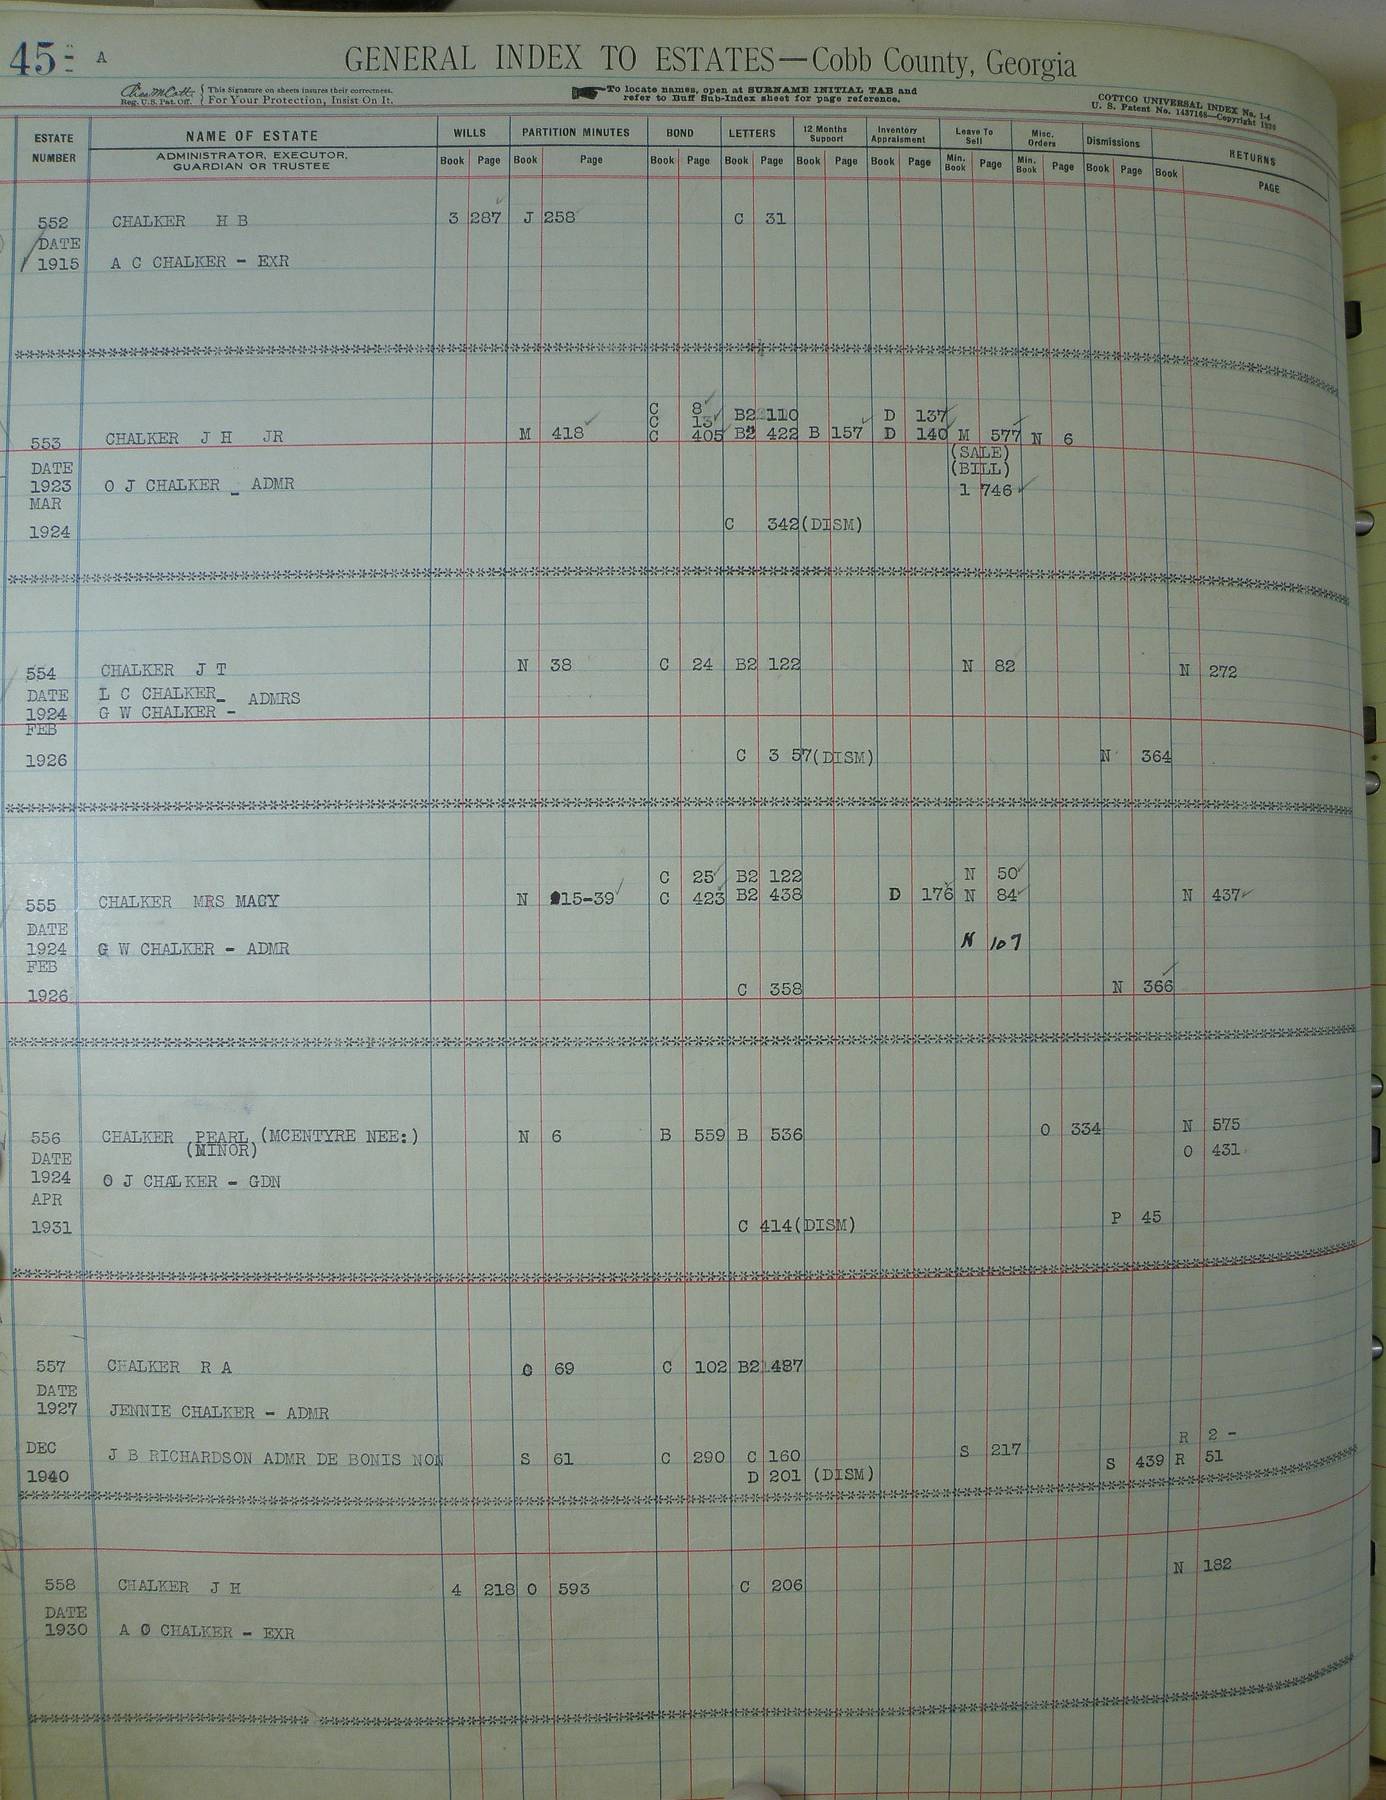 45 A
GENERAL INDEX TO ESTATES—Cobb County, Georgia
Reg. U.S. Pat. Off. { This Signature on sheets insures their correctness. For Your Protection, Insist On It.
To locate names, open at SURNAME INITIAL TAB and
refer to Buff Sub-Index sheet for page reference.
COTTCO UNIVERSAL INDEX No. 1-4
U. S. Patent No. 1437168—Copyright
ESTATE NUMBER NAME OF ESTATE WILLS PARTITION MINUTES BOND LETTERS 12 Months Support Inventory Appraisment Leave To Sell Misc. Orders Dismissions RETURNS
ADMINISTRATOR, EXECUTOR, GUARDIAN OR TRUSTEE Book Page Book Page Book Page Book Page Book Page Book Page Min. Book Page Min. Book Page Book Page Book PAGE
552 CHALKER H B 3 287 J 258 C 31
DATE
1915 A C CHALKER - EXR
C 8 B2 110 D 137
C 13
553 CHALKER J H JR M 418 C 405 B2 422 B 157 D 140 M 577 N 6
(SALE)
DATE (BILL)
1923 O J CHALKER - ADMR 1 746
MAR
1924 C 342(DISM)
554 CHALKER J T N 38 C 24 B2 122 N 82 N 272
DATE L C CHALKER- ADMRS
1924 G W CHALKER -
FEB
1926 C 3 57(DISM) N 364
C 25 B2 122 N 50
555 CHALKER MRS MACY N 15-39 C 423 B2 438 D 176 N 84 N 437
DATE
1924 G W CHALKER - ADMR N 107
FEB
1926 C 358 N 366
556 CHALKER PEARL (MCENTYRE NEE:) N 6 B 559 B 536 O 334 N 575
DATE (MINOR) O 431
1924 O J CHALKER - GDN
APR
1931 C 414(DISM) P 45
557 CHALKER R A O 69 C 102 B2 487
DATE
1927 JENNIE CHALKER - ADMR
R 2 -
DEC J B RICHARDSON ADMR DE BONIS NON S 61 C 290 C 160 S 217 S 439 R 51
1940 D 201 (DISM)
N 182
558 CHALKER J H 4 218 O 593 C 206
DATE
1930 A O CHALKER - EXR